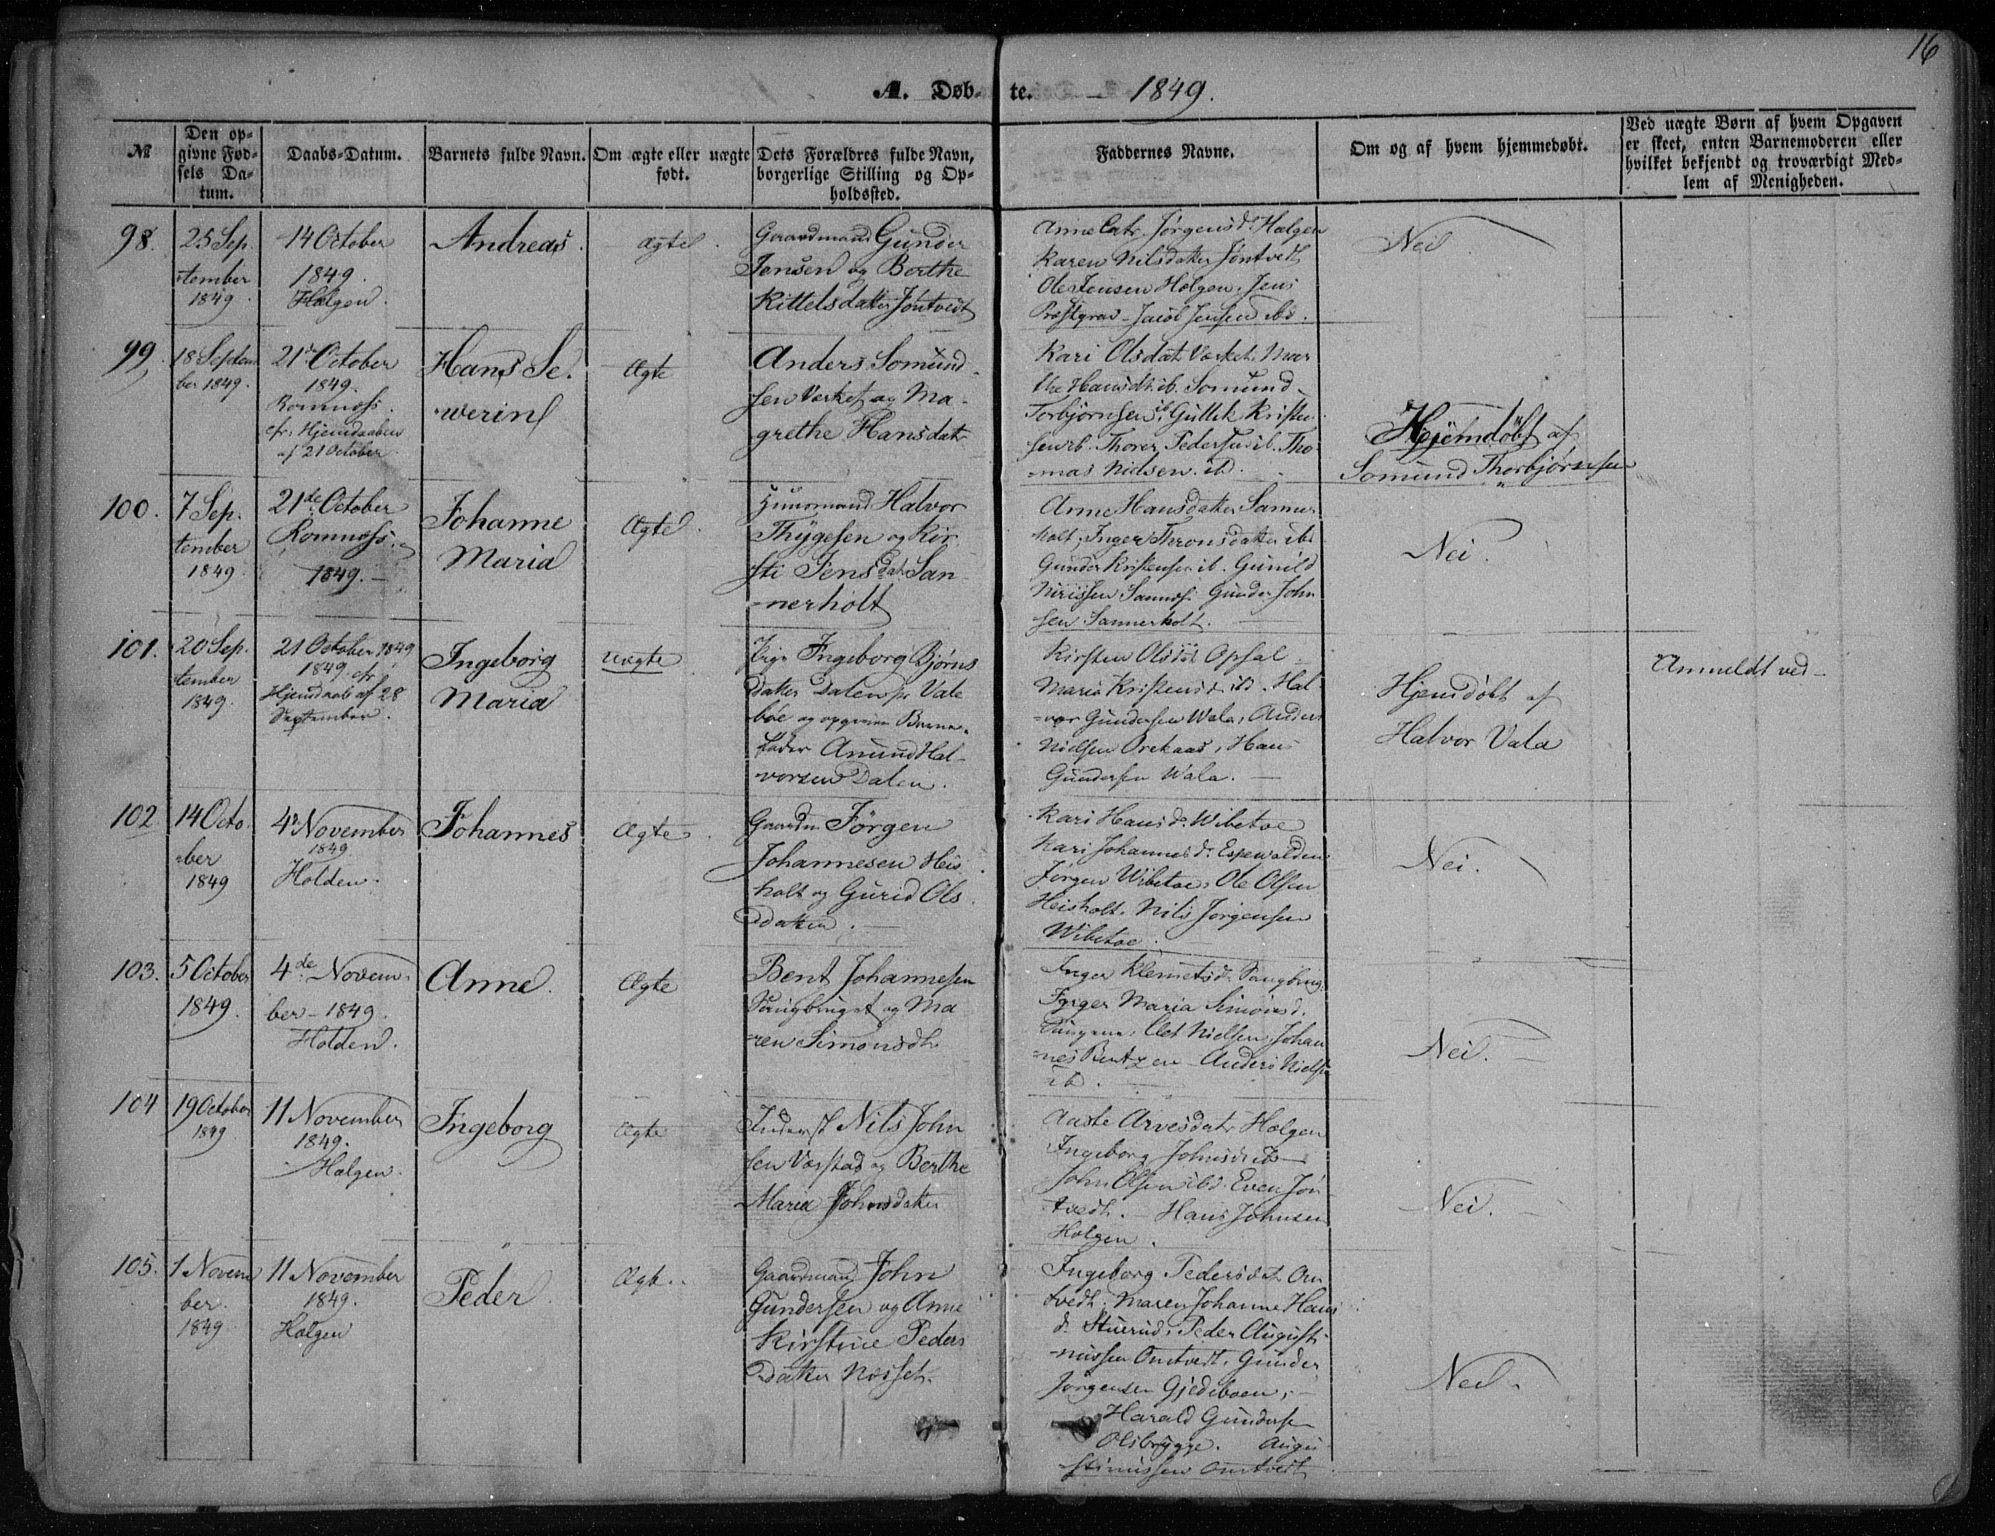 16
A. Døbte. – 1849.
№
Den opgivne Fødsels Datum.
Daabs-Datum.
Barnets fulde Navn.
Om ægte eller uægte født.
Dets Forældres fulde Navn, borgerlige Stilling og Opholdssted.
Faddernes Navne.
Om og af hvem hjemmedøbt.
Ved uægte Børn af hvem Opgaven er skeet, enten Barnemoderen eller hvilket bekjendt og troværdigt Medlem af Menigheden.
98.
25 Sep.
tember
1849
14 October
1849.
Hælgen.
Andreas.
ægte
Gaardmand Gunder
Jensen og Berthe
Kittelsdatter Jøntvedt
Anne Catr. Jørgensd. Hælgen
Karen Nilsdatter Jøntvedt
Ole Jensen Holgen, Jens
Jacob Jensen ibd.
Nei
99.
18 Septem
ber 1849.
21de October
1849.
Romnæss.
cfr. Hjemdaaben
af 21 October.
Hans Se.
werin
Ægte
Anders Somund
sen Værket og Ma-
grethe Hansdat
Kari Olsdat Værket. Mar
the Hansdt ib. Somund
Torbjørnsen ib, Gullik Kristen
sen ib. Thorer Pedersen ib. Tho
mas Nielsen ib.
Hjemdøbt af
Somund Thorbjørnsen
100.
7 Sep.
tember
1849.
21de October
Romnæss.
1849. –
Johanne
Maria
Ægte
Huusmand Halvor
Thygesen og Kir
sti Jensdat San-
nerholt
Anne Hansdatter Sanner
holt, Inger Thronsdatter ibd
Gunder Kristensen ib. Gunild
Sannæs. Gunder John
sen Sannerholt.
Nei.
101.
20 Sep.
tember
1849.
21 October 1849
1849. cfr
Hjemdaab af 28
September.
Ingeborg
Maria
uægte
Pige Ingeborg Bjørns
datter Dalen pr Vale
bøe og opgiven Barne-
fader Amund Hal-
vorsen Dalen.
Kirsten Olsdt Opsal
Maria Kristensd ibd. Hal-
vor Gundersen Wala, Anders
Nielsen Orekaas, Hans
Gundersen Wala.
Hjemdøbt af
Halvor Vala
Anmeldt ved –
102
14 Octo.
ber
1849
4de November
1849
Holden.
Johannes
Ægte
Gaardm. Jørgen
Johannesen Heis
holt og Gurid Ols
datter.
Kari Hans d. Wibetoe
Kari Johannes d. Espevalden
Jørgen Wibetoe, Ole Olsen
Heisholt. Nils Jørgensen
Wibetoe.
Nei.
103.
5 October
1849.
4de Novem-
ber – 1849.
Holden.
Anne.
Ægte
Bent Johannesen
og Ma
ren Simonsdt.
Inger Klemetsd.
Inger Maria Simonsd.
Nielsen. Johan
nes Bentzen – Anders Nielsen
ib.
Nei.
104
19 October
1849
11 November
1849.
Hælgen.
Ingeborg
Ægte
Inderst Nils John
sen Værstad og Berthe
Maria Johnsdatter
Aaste Arvesdatr Hælgen
Ingeborg Johnsd ib
John Olsen ibd. Even Jøn
tvedt. – Hans Johnsen
Holgen.
Nei.
105.
1 Novem
ber.
1849
11 November
1849.
Hælgen
Peder
Ægte
Gaardmand John
Gundersen og Anne
Kirstine Peders
datter Næsset.
Ingeborg Pedersdat Om
tvedt. Maren Johanne Hans
d. Stuerud, Peder August
nussen Omtvedt. Gunder
Jørgensen Gjedeboen,
Harald Gundersen
Olsbrygge. Augu
stinussen Omtvedt
Nei.